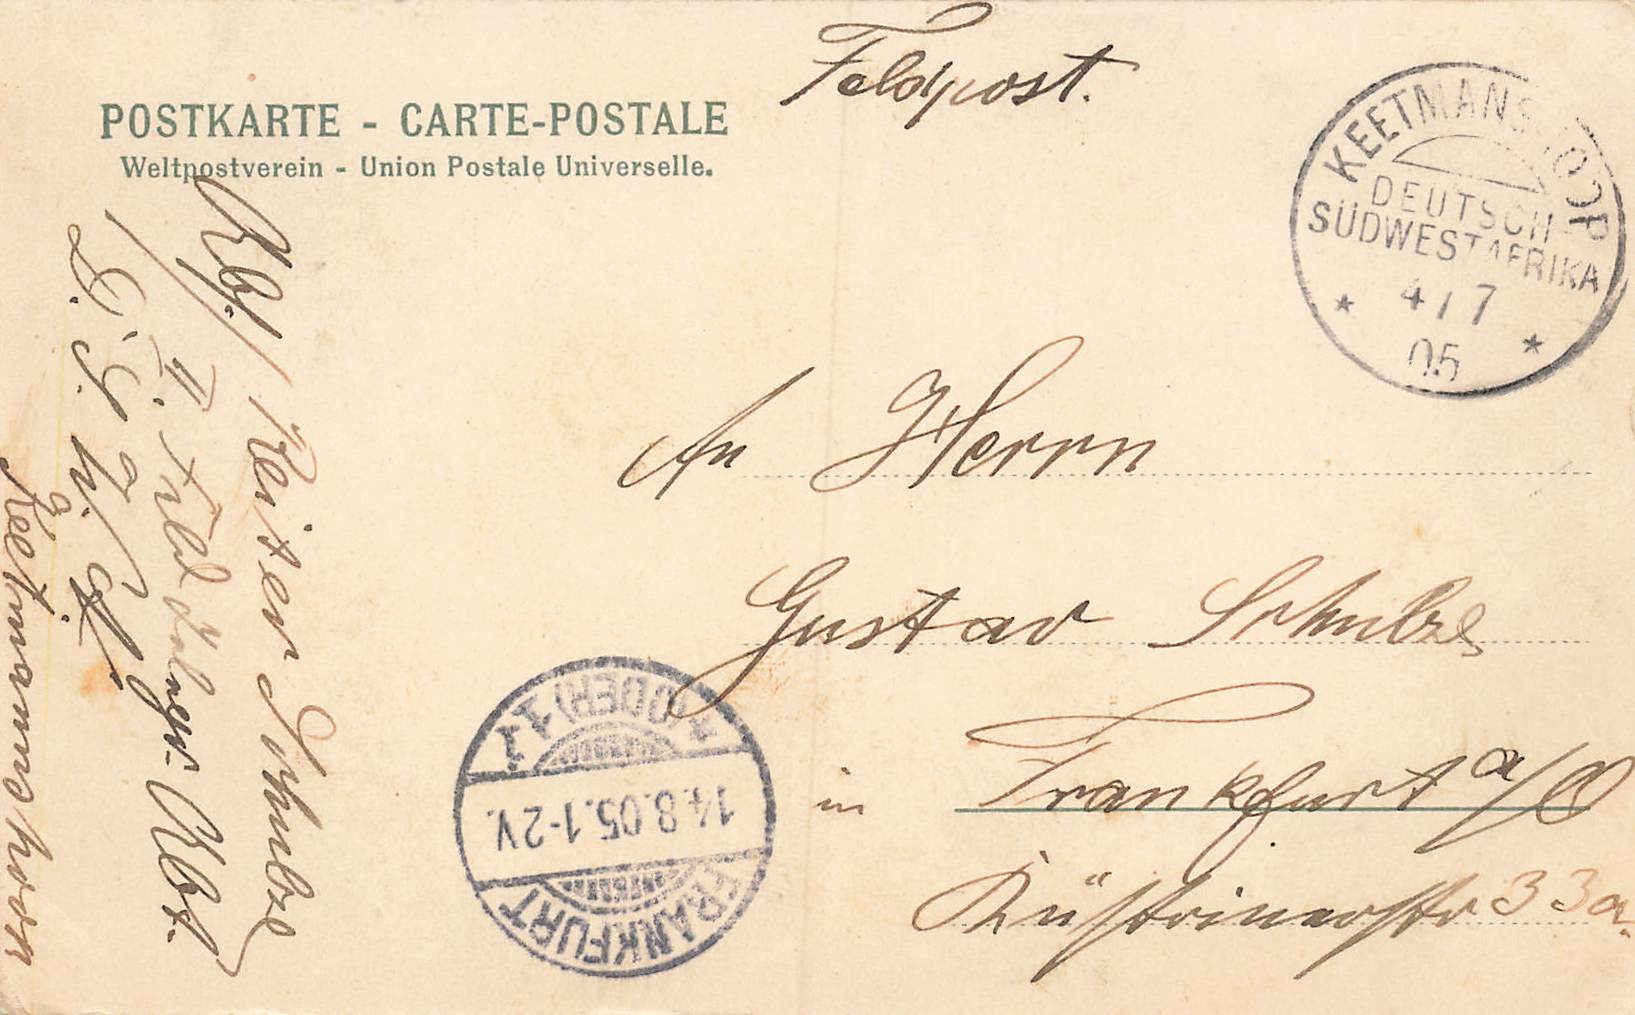 Feldpost.
POSTKARTE - CARTE-POSTALE
Weltpostverein - Union Postale Universelle.
KEETMANSHOOP
DEUTSCH-
SÜDWESTAFRIKA
4 / 7
05
An Herrn
Gustav Schulze
in Frankfurt a/O
Küstrinerstr 33a.
FRANKFURT
14.8.05.1-2V.
(ODER) 1
Abs/ Reiter Schulze
II. Feld Abt.
Keetmannshoop